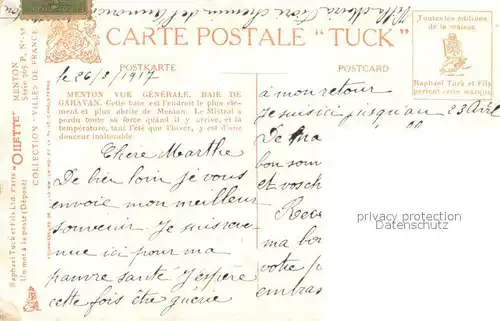 Villa Maria Fiori chemin de l'annonciade
CARTE POSTALE "TUCK"
POSTKARTE
POSTCARD
Toutes les éditions
de la maison
Raphael Tuck et Fils
portent cette marque
Raphael Tuck et Fils, Ltd. Paris "OILETTE" MENTON
Un mot à la poste (Déposé) Série 965 P. No
COLLECTION - VILLES DE FRANCE
le 26/3/1917
MENTON VUE GÉNÉRALE. BAIE DE
GARAVAN. Cette baie est l'endroit le plus clé-
ment et plus abrité de Menton. Le Mistral a
perdu toute sa force quand il y arrive, et
la température, tant l'été que l'hiver, y est d'une
douceur inaltérable
Chère Marthe
De bien loin je vous
envoie mon meilleur
souvenir. Je suis reve-
nue ici pour ma
pauvre santé j'espère
cette fois être guérie
à mon retour
Je suis ici jusqu'au 23 Avril
De ma
bon sou
et vosch
Rece
ma bo
votre p
embras
copyright philatelie